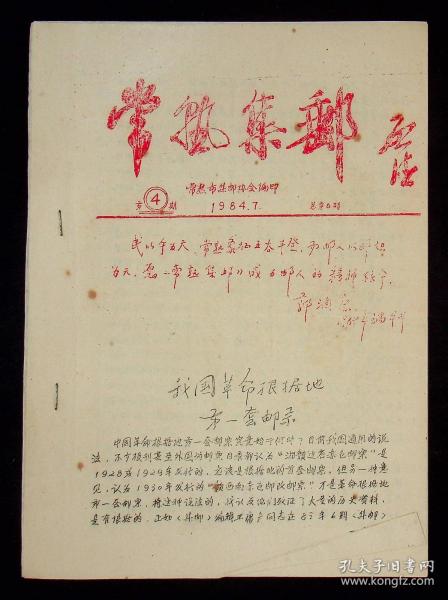 常熟集邮
常熟市集邮协会编印
第4期 1984.7. 总第6期
民以食为天、常熟
为天，愿《常熟集邮》成为邮人的精神
我国革命根据地
第一套邮票
中国革命根据地第一套邮票究竟始于何时？目前我国通用的说
法，不少报刊甚至外国的邮页目录都认为“湘赣边省赤色邮票”是
1928或1929年发行的，应该是根据地的首套邮票，但另一种意
见，认为1930年发行的“赣西南赤色邮政邮票”才是革命根据地
第一套邮票。持这种说法的，我认为他们考证了大量的历史资料，
是有根据的。正如《集邮》编辑王 同志在57年6期《集邮》
孔夫子旧书网
www.kongfz.com